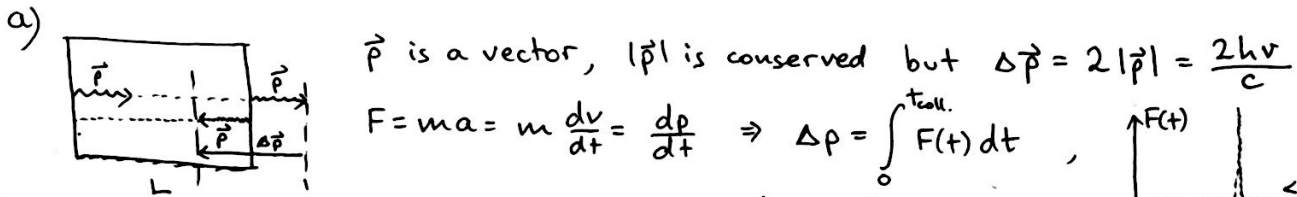 a)
p⃗ is a vector, |p⃗| is conserved but Δp⃗ = 2|p⃗| = 2hν/c
p⃗ p⃗
F = ma = m dv/dt = dp/dt ⇒ Δp = ∫₀^tcoll. F(t) dt , F(t)
p⃗ Δp⃗
L